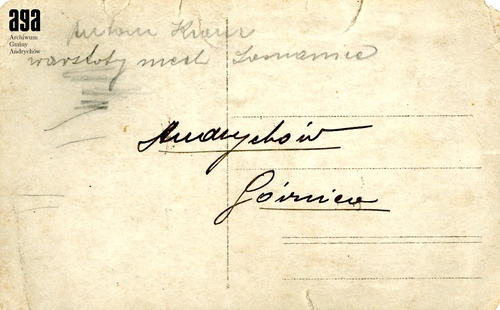 aga
Archiwum
Gminy
Andrychów
Antoni
warsztaty mech
Andrychów
Górnica